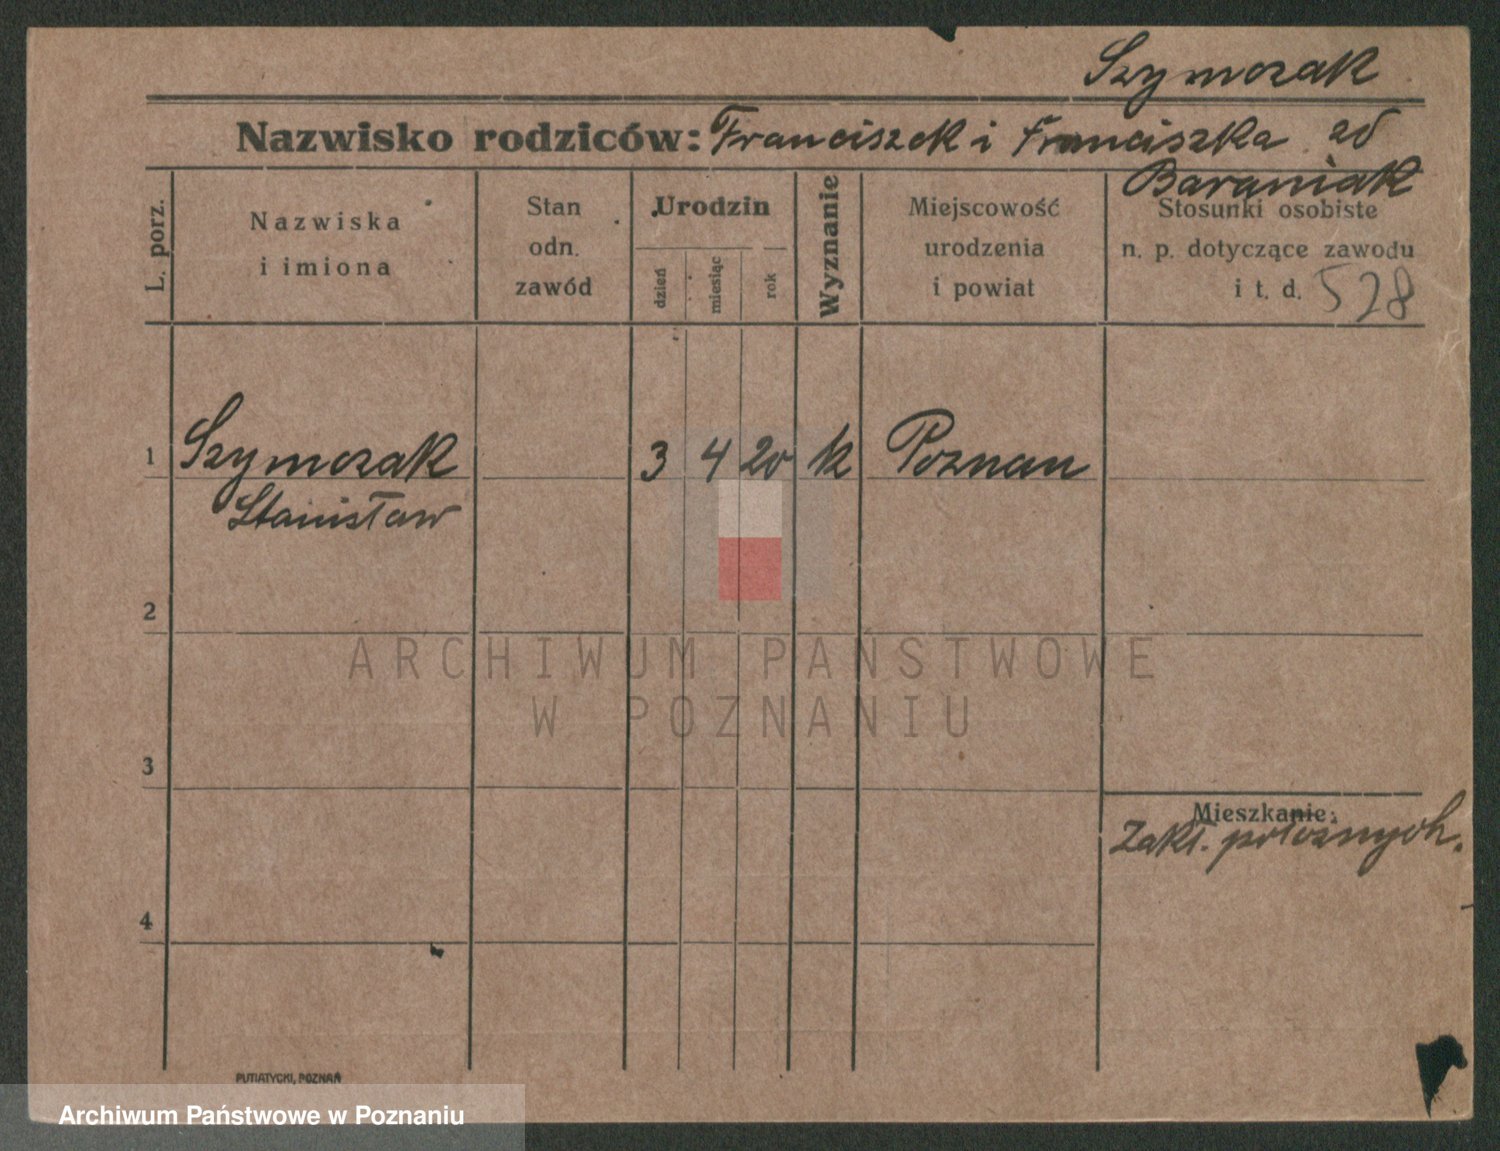 Szymczak
Nazwisko rodziców: Franciszek i Franciszka zd
Baraniak
L. porz.
Nazwiska
i imiona
Stan
odn.
zawód
Urodzin
dzień
miesiąc
rok
Wyznanie
Miejscowość
urodzenia
i powiat
Stosunki osobiste
n. p. dotyczące zawodu
i t. d. 528
1 Szymczak 3 4 20 k Poznan
Stanisław
2
ARCHIWUM PAŃSTWOWE
W POZNANIU
3
Mieszkanie:
Zakł. położnych.
4
PUTIATYCKI, POZNAŃ
Archiwum Państwowe w Poznaniu